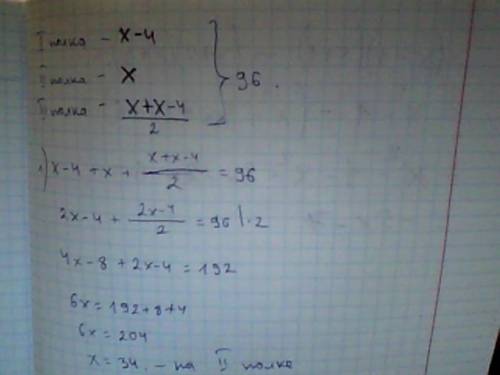 I полка - x-4
II полка - x } 96.
III полка - (x+x-4)/2
1) x-4+x+(x+x-4)/2=96
2x-4+(2x-4)/2=96 |·2
4x-8+2x-4=192
6x=192+8+4
6x=204
x=34. - на II полке